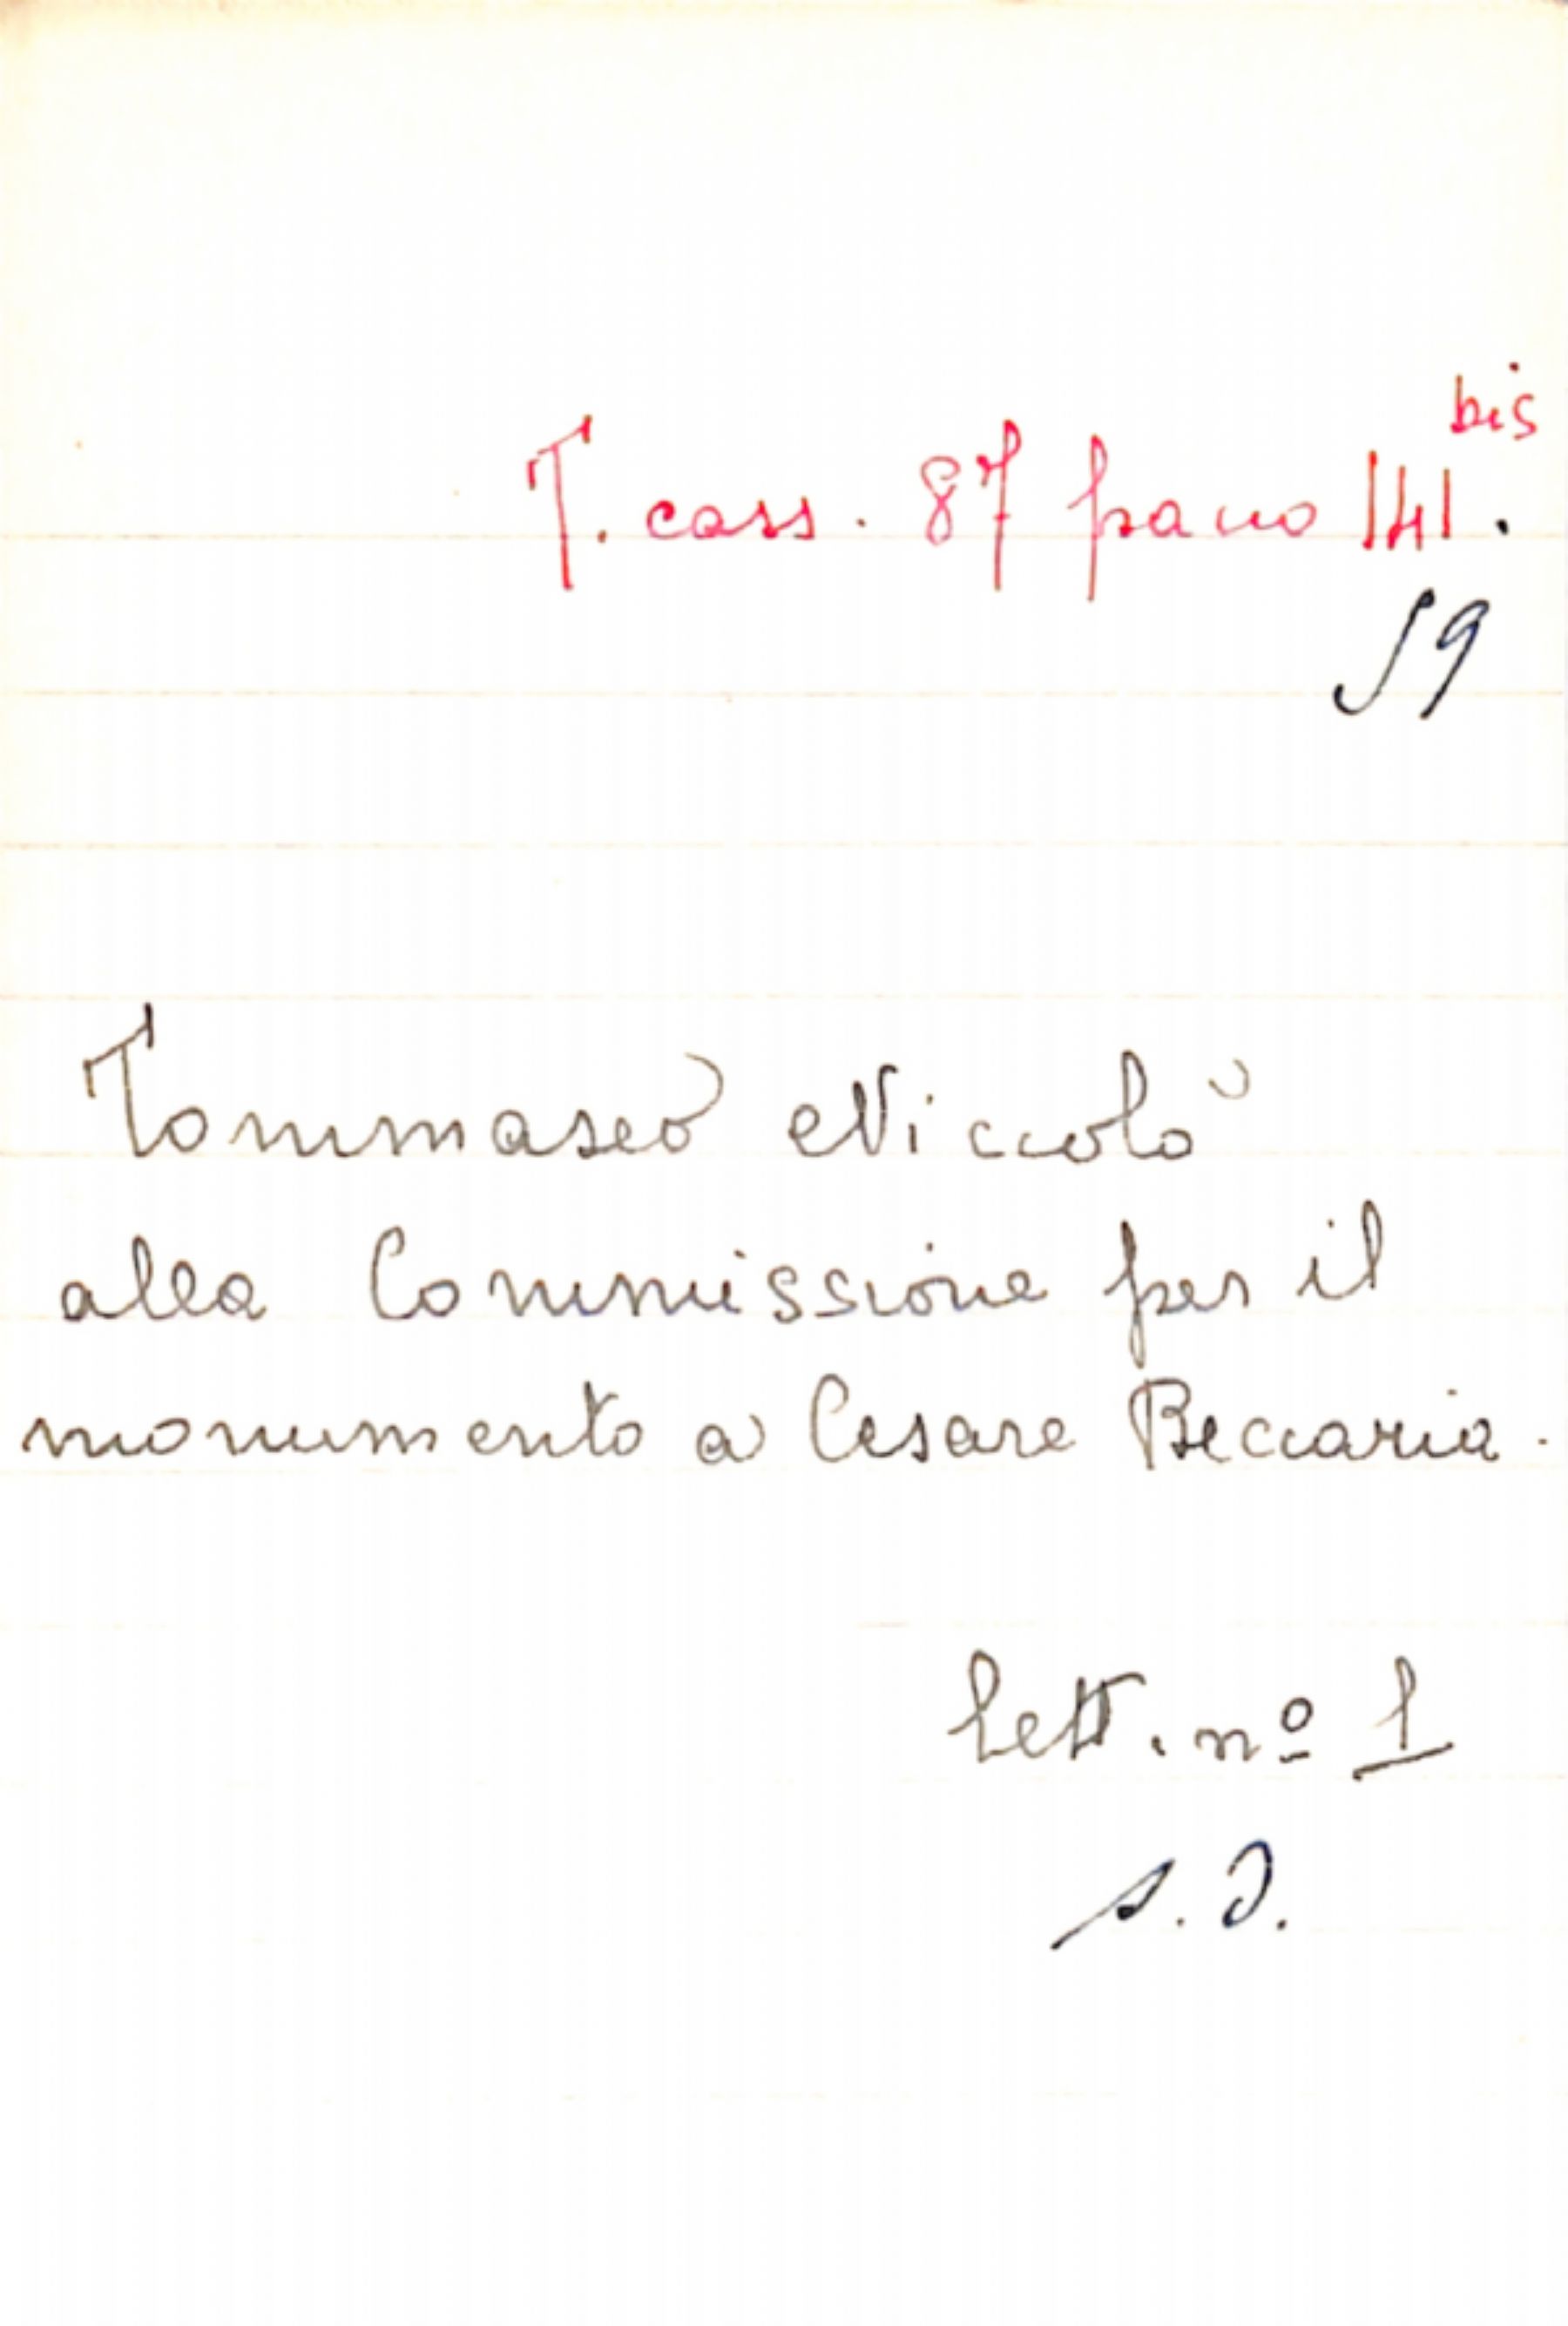 T. cass. 87 pacco 141. bis
59
Tommaseo Niccolò
alla Commissione per il
monumento a Cesare Beccaria.
Lett. nº 1
s. d.